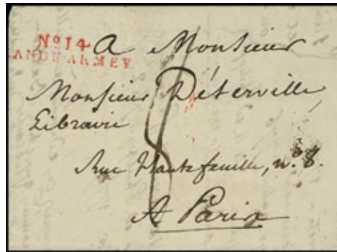 No 14
ANDE ARMÉE
A Monsieur
Monsieur Déterville
Libraire
Rue Hautefeuille, n.° 8.
A Paris